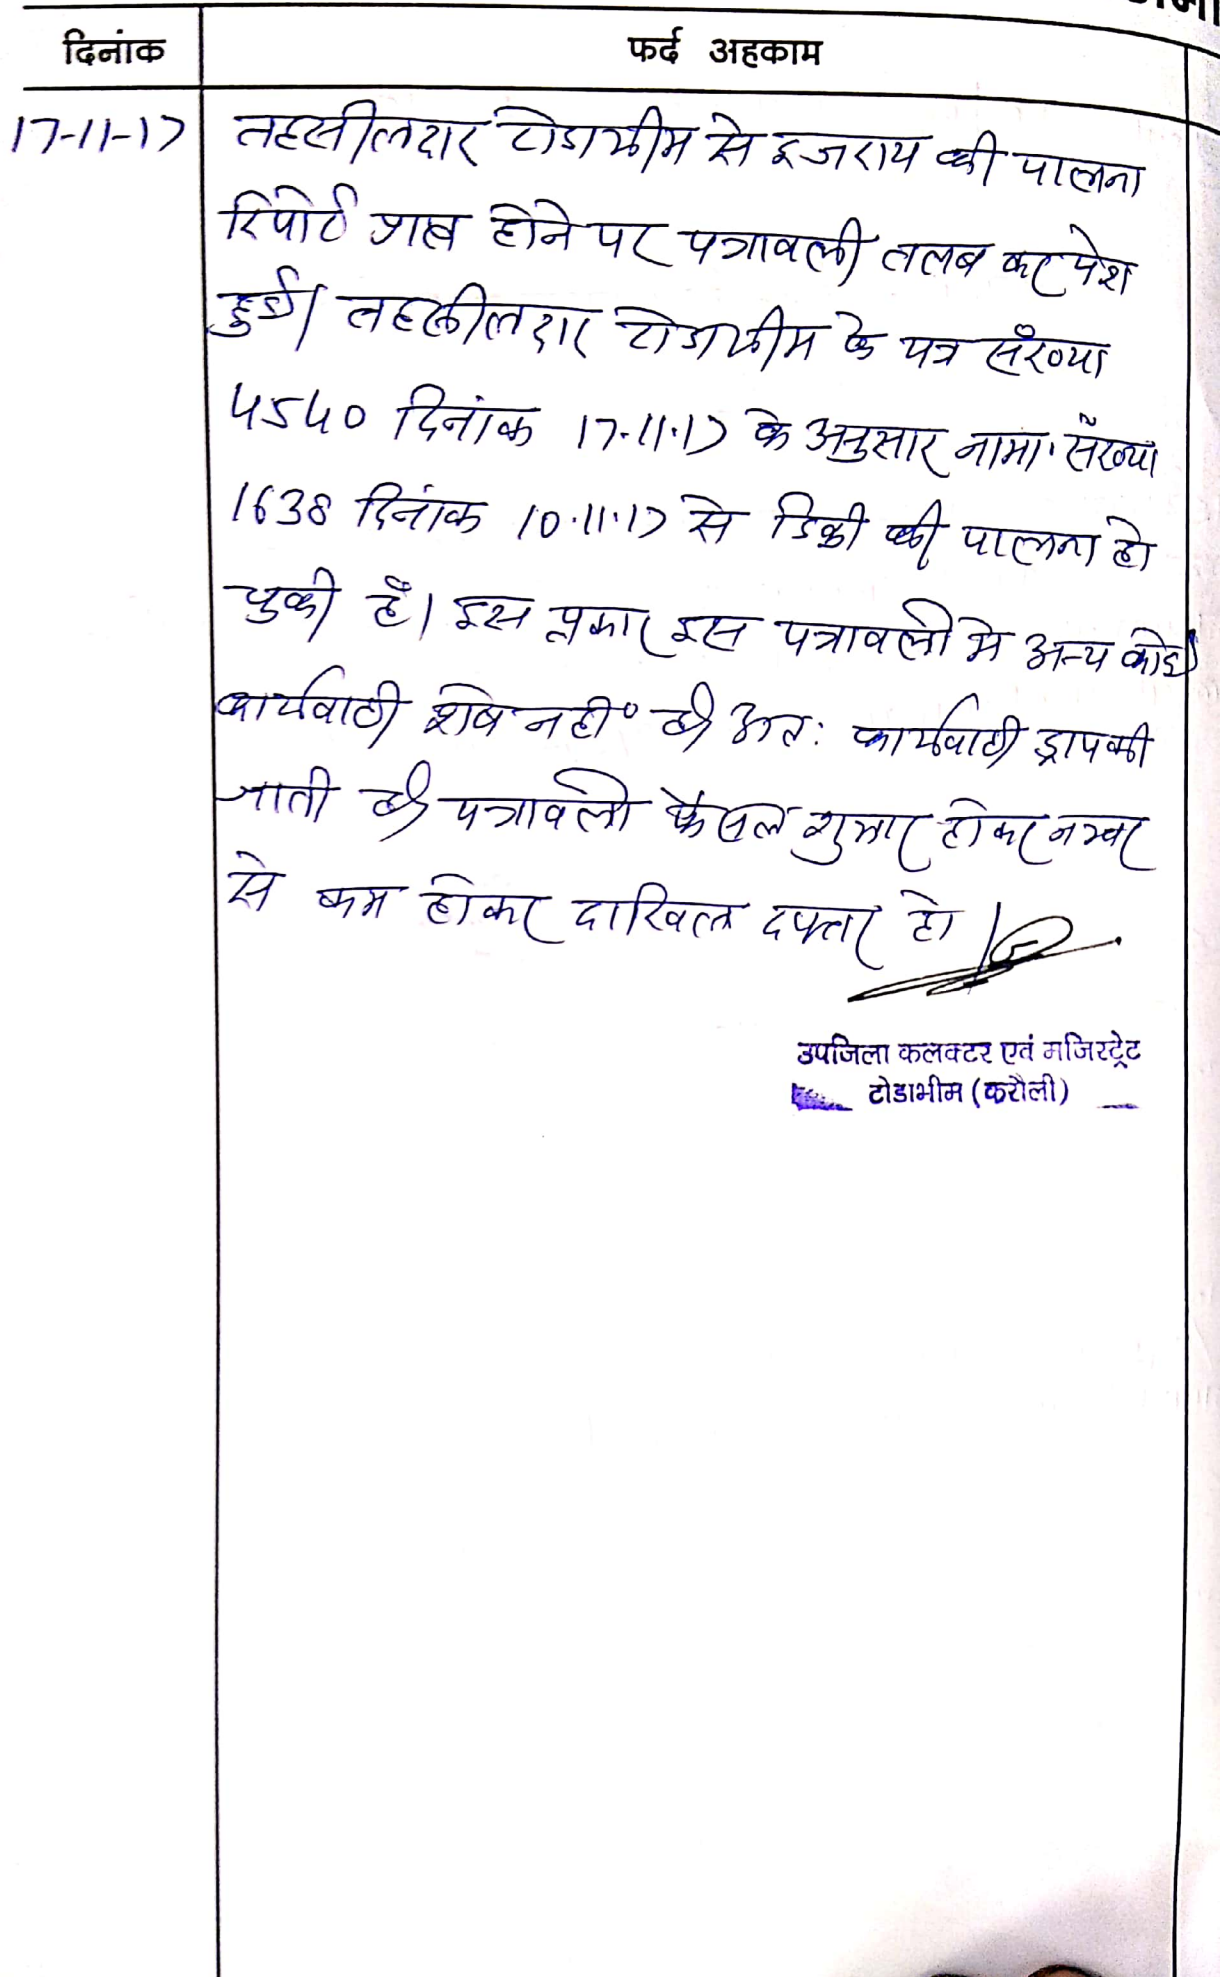 दिनांक
फर्द अहकाम
17-11-17
तहसीलदार टोडाभीम से इजराय की पालना
रिपोर्ट प्राप्त होने पर पत्रावली तलब कर पेश
हुई। तहसीलदार टोडाभीम के पत्र संख्या
4540 दिनांक 17.11.17 के अनुसार नामा. संख्या
1638 दिनांक 10.11.17 से डिक्री की पालना हो
चुकी है। इस प्रकार इस पत्रावली मे अन्य कोई
कार्यवाही शेष नहीं है। अतः कार्यवाही ड्राप की
जाती है। पत्रावली फैसल शुमार होकर नम्बर
से कम होकर दाखिल दफ्तर हो।
उपजिला कलक्टर एवं मजिस्ट्रेट
टोडाभीम (करौली)